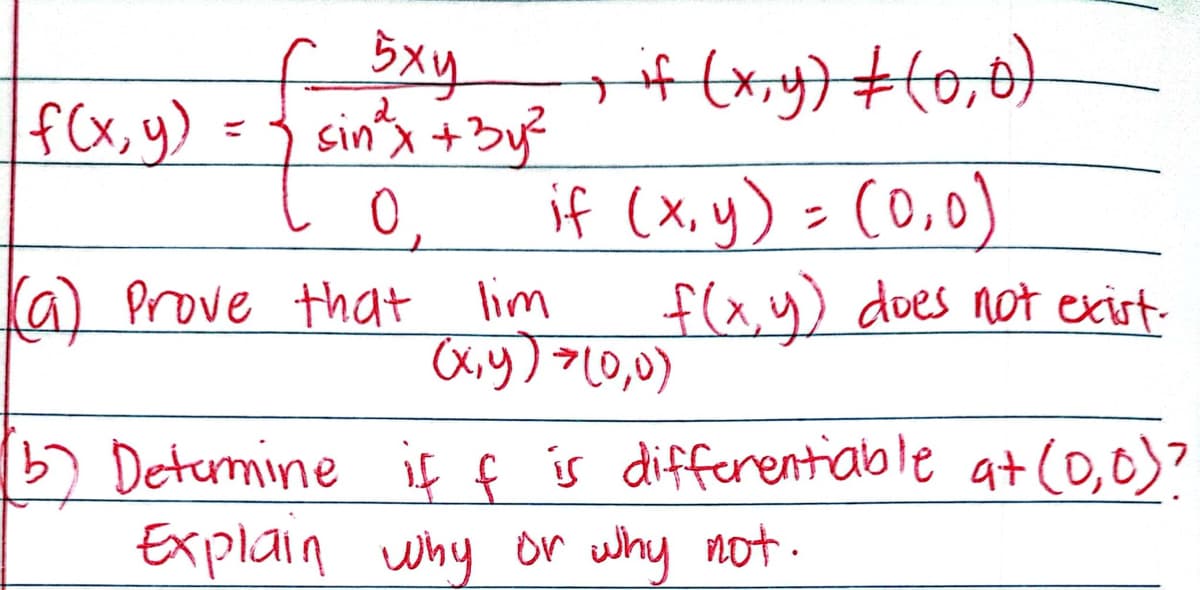 f(x,y) = { 5xy / (sin²x + 3y²) , if (x,y) ≠ (0,0)
0, if (x,y) = (0,0)
(a) Prove that lim f(x,y) does not exist.
(x,y)→(0,0)
(b) Determine if f is differentiable at (0,0)?
Explain why or why not.